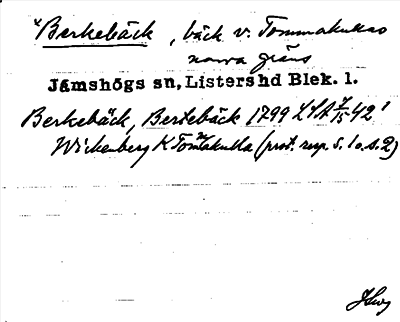 *Berkebäck, bäck v. Tommakullas
norra gräns
Jämshögs sn, Listers hd Blek. l.
Berkebäck, Bertebäck 1799 LSA 7/15 42¹
Wickenberg K Tommakulla (prot. resp. s. 1 o. s. 2)